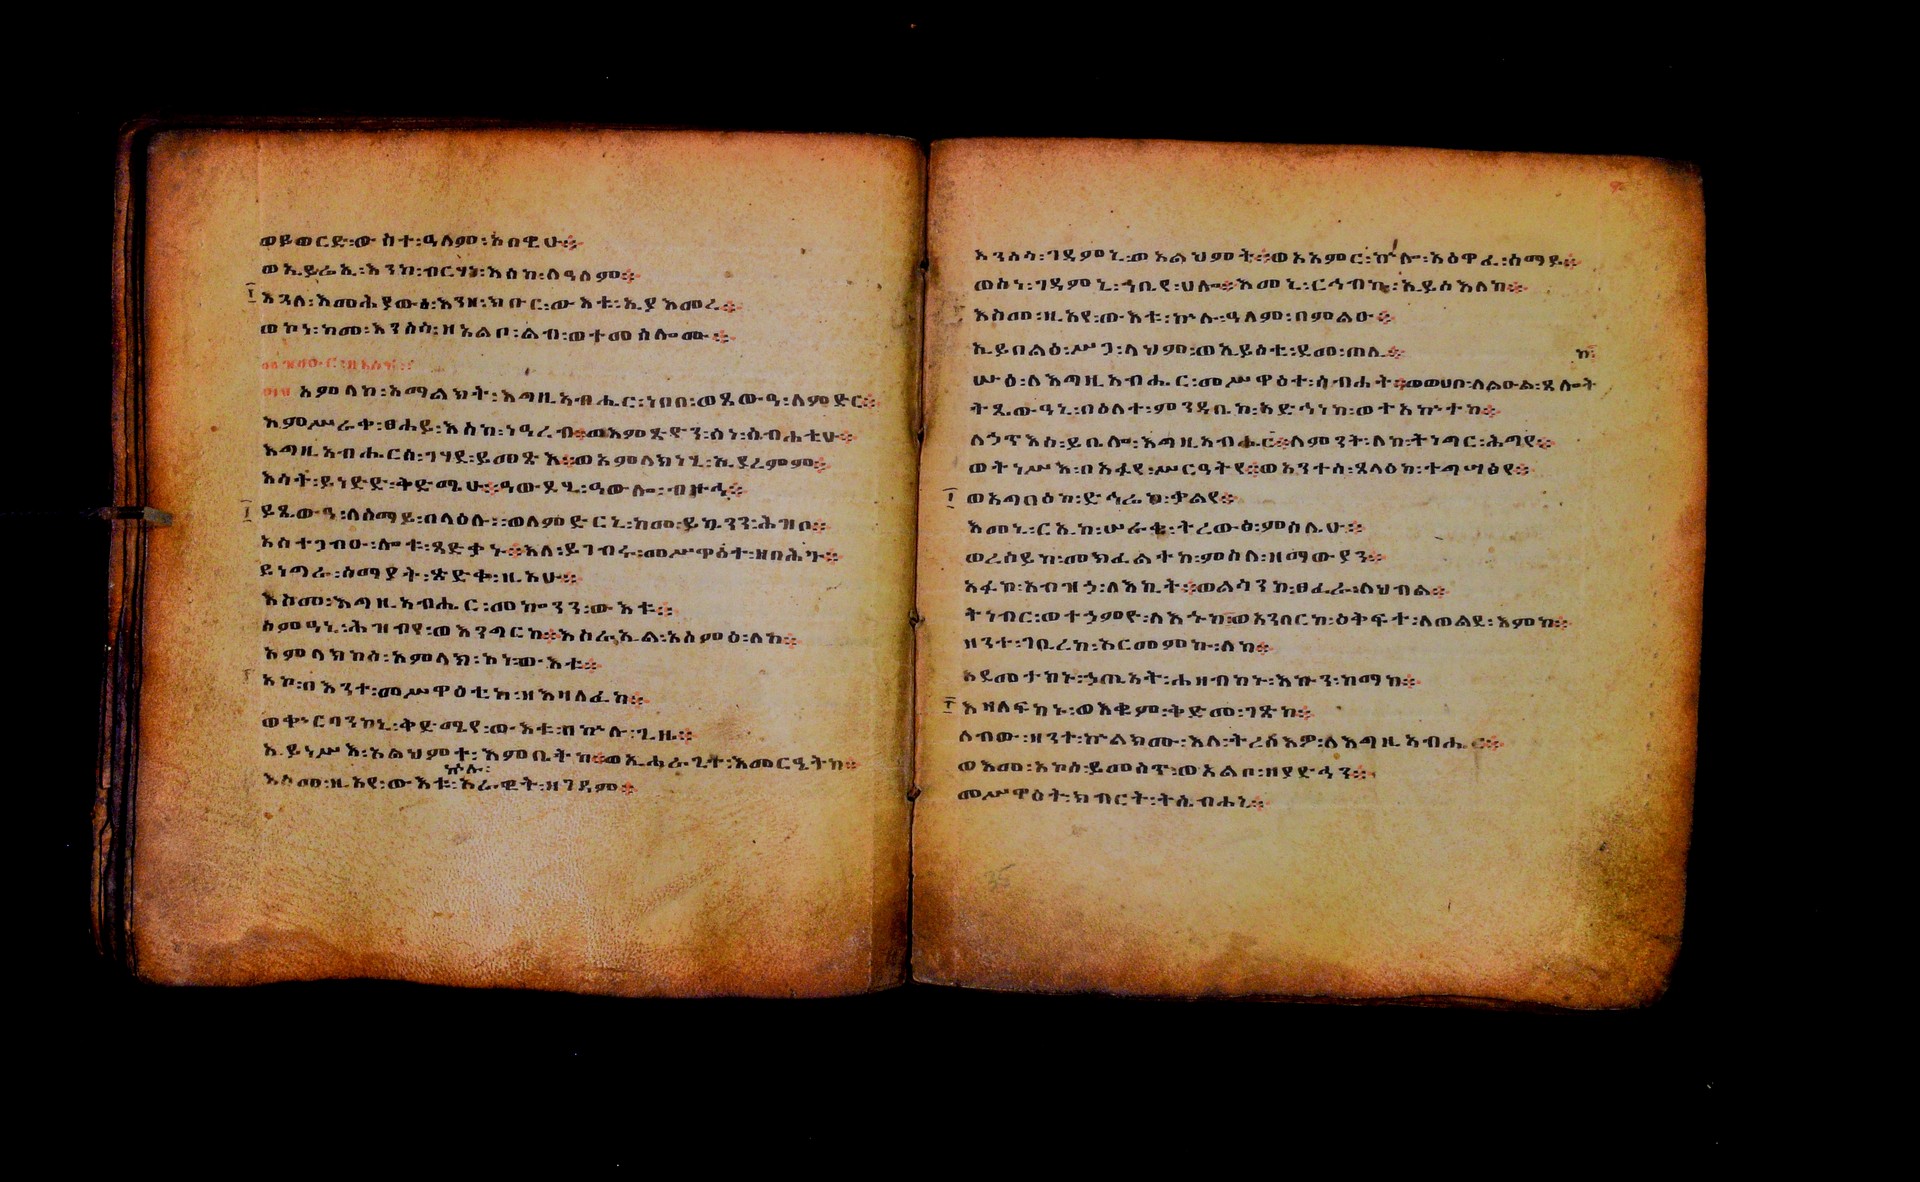 ወይወርድ፡ውስተ፡ዓለም፡አበዊሁ፨
ወኢይሬኢ፡እንከ፡ብርሃነ፡እስከ፡ለዓለም፨
፲ እጓለ፡እመሕያው፡እንዘ፡ክቡር፡ውእቱ፡ኢያእመረ፨
ወኮነ፡ከመ፡እንስሳ፡ዘአልቦ፡ልብ፡ወተመሰሎሙ፨
መዝሙር፡ዘአሳፍ፨
፵፱ አምላከ፡አማልክት፡እግዚአብሔር፡ነበበ፡ወጼውዓ፡ለምድር፨
እምሥራቀ፡ፀሐይ፡እስከ፡ነዓረብ፨ወእምጽዮን፡ስነ፡ስብሐቲሁ፨
እግዚአብሔርሰ፡ገሃደ፡ይመጽእ፨ወአምላክነሂ፡ኢያረምም፨
እሳት፡ይነድድ፡ቅድሜሁ፨ዓውዶሂ፡ዓውሎ፡ብዙኅ፨
፲ ይጼውዓ፡ለሰማይ፡በላዕሉ፡፡ወለምድርኒ፡ከመ፡ይኰንን፡ሕዝቦ፨
አስተጋብዑ፡ሎቱ፡ጻድቃኑ፨እለ፡ይገብሩ፡መሥዋዕተ፡ዘበሕጉ፨
ይነግራ፡ሰማያት፡ጽድቀ፡ዚአሁ፨
እስመ፡እግዚአብሔር፡መኰንን፡ውእቱ፨
ስምዓኒ፡ሕዝብየ፡ወእንግርከ፨እስራኤል፡አስምዕ፡ለከ፨
አምላክከሰ፡አምላክ፡አነ፡ውእቱ፨
አኮ፡በእንተ፡መሥዋዕቲከ፡ዘእዛለፈከ፨
ወቍርባንከኒ፡ቅድሜየ፡ውእቱ፡በኵሉ፡ጊዜ፨
ኢይነሥእ፡አልህምተ፡እምቤትከ፨ወኢሐራጊተ፡እመርዔትከ፨
ኵሉ፡
እስመ፡ዚአየ፡ውእቱ፡አራዊት፡ዘገዳም፨
እንስሳ፡ገዳምኒ፡ወአልህምት፨ወአአምር፡ኵሎ፡አዕዋፈ፡ሰማይ፨
ወስነ፡ገዳምኒ፡ኀቤየ፡ሀሎ፨እመኒ፡ርኅብኩ፡ኢይስእለከ፨
እስመ፡ዚአየ፡ውእቱ፡ኵሉ፡ዓለም፡በምልዑ፨
ኢይበልዕ፡ሥጋ፡ላህም፡ወኢይሰቲ፡ደመ፡ጠሊ፨
ከ፡
ሡዕ፡ለእግዚአብሔር፡መሥዋዕተ፡ስብሐት፨ወሀቦ፡ለልዑል፡ጸሎት
ትጼውዓኒ፡በዕለተ፡ምንዳቤከ፡አድኅነከ፡ወተአኵተከ፨
ለኃጥእሰ፡ይቤሎ፡እግዚአብሔር፨ለምንት፡ለከ፡ትነግር፡ሕግየ፨
ወትነሥእ፡በአፉየ፡ሥርዓትየ፨ወአንተሰ፡ጸላዕከ፡ተግሣፅየ፨
፲ ወአግባዕከ፡ድኅሬከ፡ቃልየ፨
እመኒ፡ርኢከ፡ሠራቂ፡ትረውፅ፡ምስሌሁ፨
ወረሰይከ፡መክፈልተከ፡ምስለ፡ዘማውያን፨
አፉከ፡አብዝኃ፡ለእኪት፨ወልሳንከ፡ፀፈራ፡ለህብል፨
ትነብር፡ወተኃምዮ፡ለእኁከ፨ወአንበርከ፡ዕቅፍተ፡ለወልደ፡እምከ፨
ዘንተ፡ገቢረከ፡አርመምኩ፡ለከ፨
አደመተከኑ፡ኃጢአት፡ሐዘብከኑ፡እኩን፡ከማከ፨
፲ እዛለፍከኑ፡ወእቁም፡ቅድመ፡ገጽከ፨
ለብው፡ዘንተ፡ኵልክሙ፡እለ፡ትረስእዎ፡ለእግዚአብሔር፨
ወእመ፡አኮሰ፡ይመስጥ፡ወአልቦ፡ዘያድኅን፨
መሥዋዕት፡ክብርት፡ትሴብሐኒ፨
35